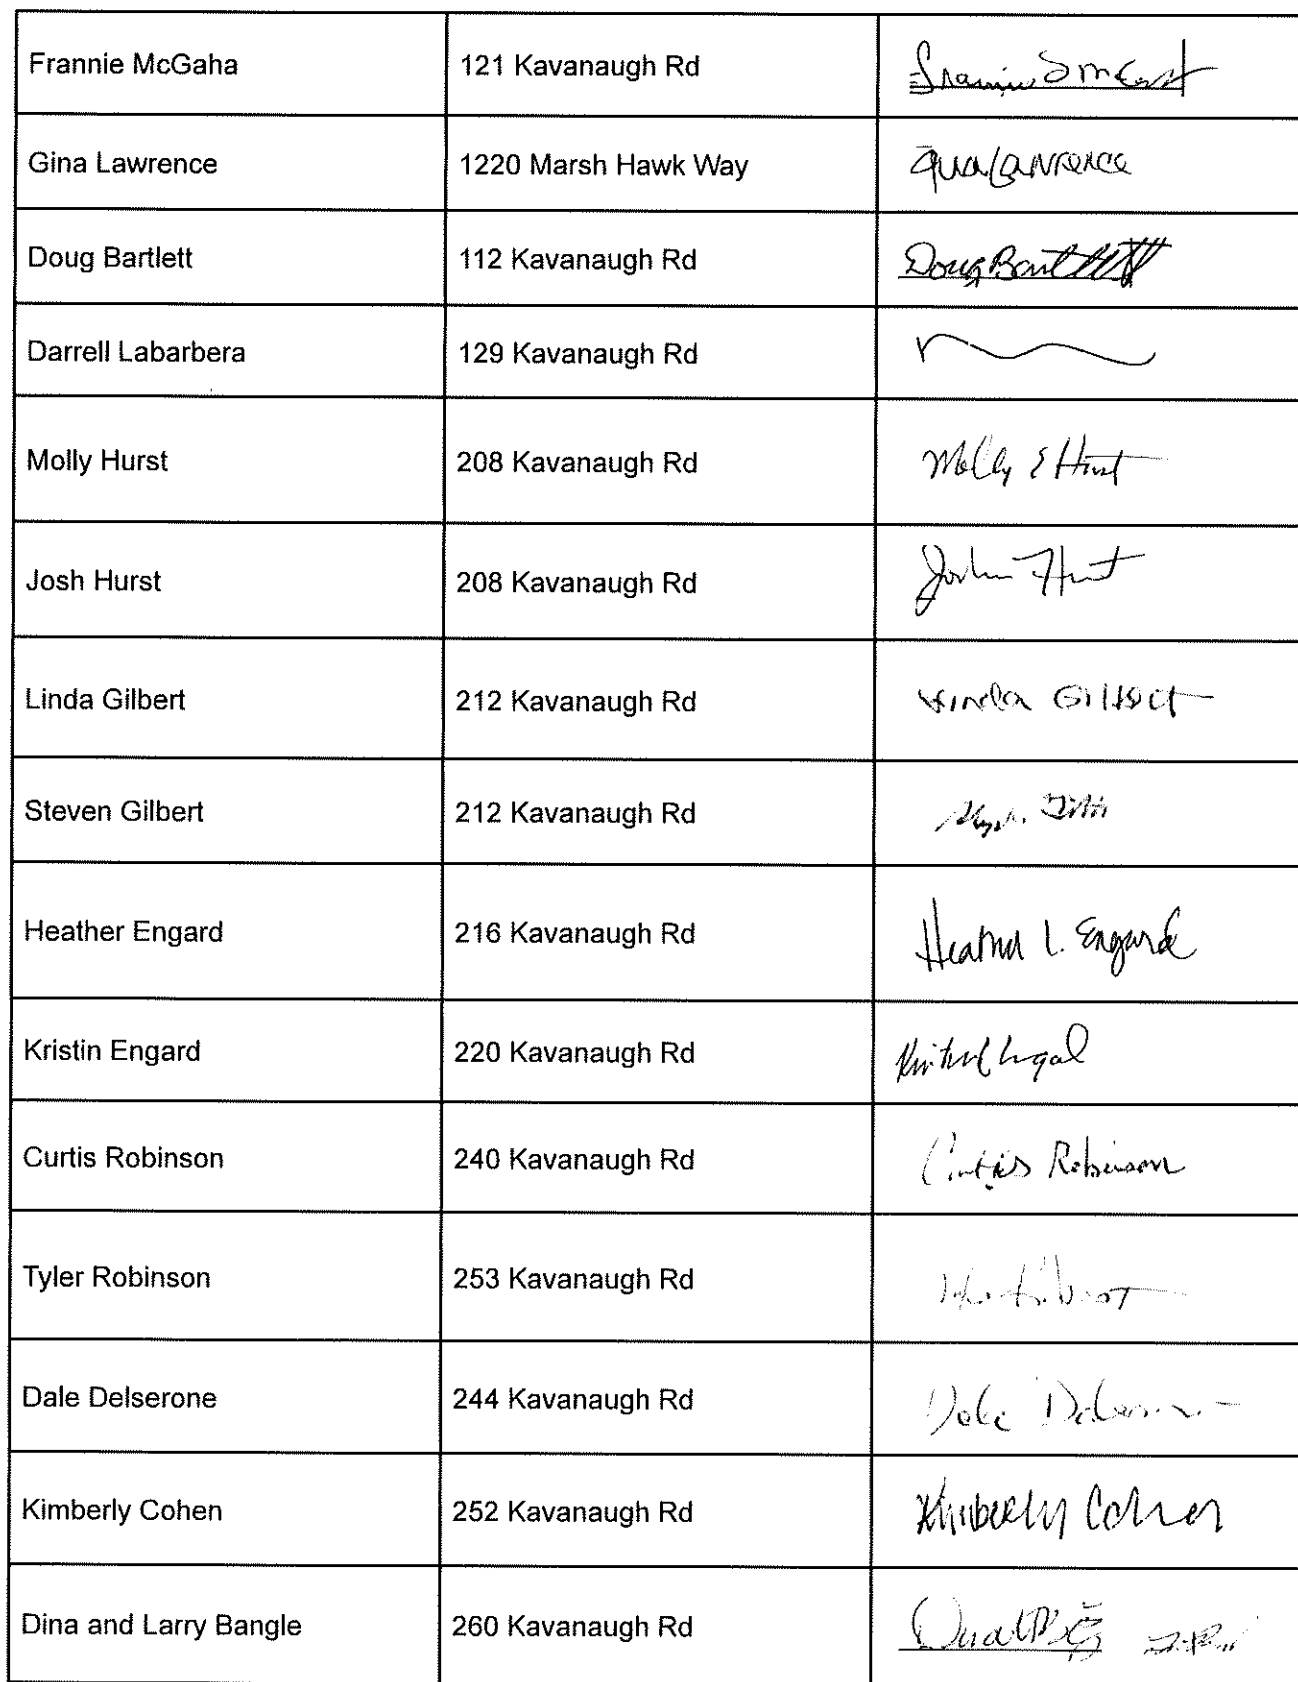 Frannie McGaha 121 Kavanaugh Rd
Gina Lawrence 1220 Marsh Hawk Way Gina Lawrence
Doug Bartlett 112 Kavanaugh Rd Doug Bartlett
Darrell Labarbera 129 Kavanaugh Rd
Molly Hurst 208 Kavanaugh Rd Molly E Hurst
Josh Hurst 208 Kavanaugh Rd Josh Hurst
Linda Gilbert 212 Kavanaugh Rd Linda Gilbert
Steven Gilbert 212 Kavanaugh Rd
Heather Engard 216 Kavanaugh Rd Heather L. Engard
Kristin Engard 220 Kavanaugh Rd
Curtis Robinson 240 Kavanaugh Rd Curtis Robinson
Tyler Robinson 253 Kavanaugh Rd
Dale Delserone 244 Kavanaugh Rd Dale
Kimberly Cohen 252 Kavanaugh Rd Kimberly Cohen
Dina and Larry Bangle 260 Kavanaugh Rd